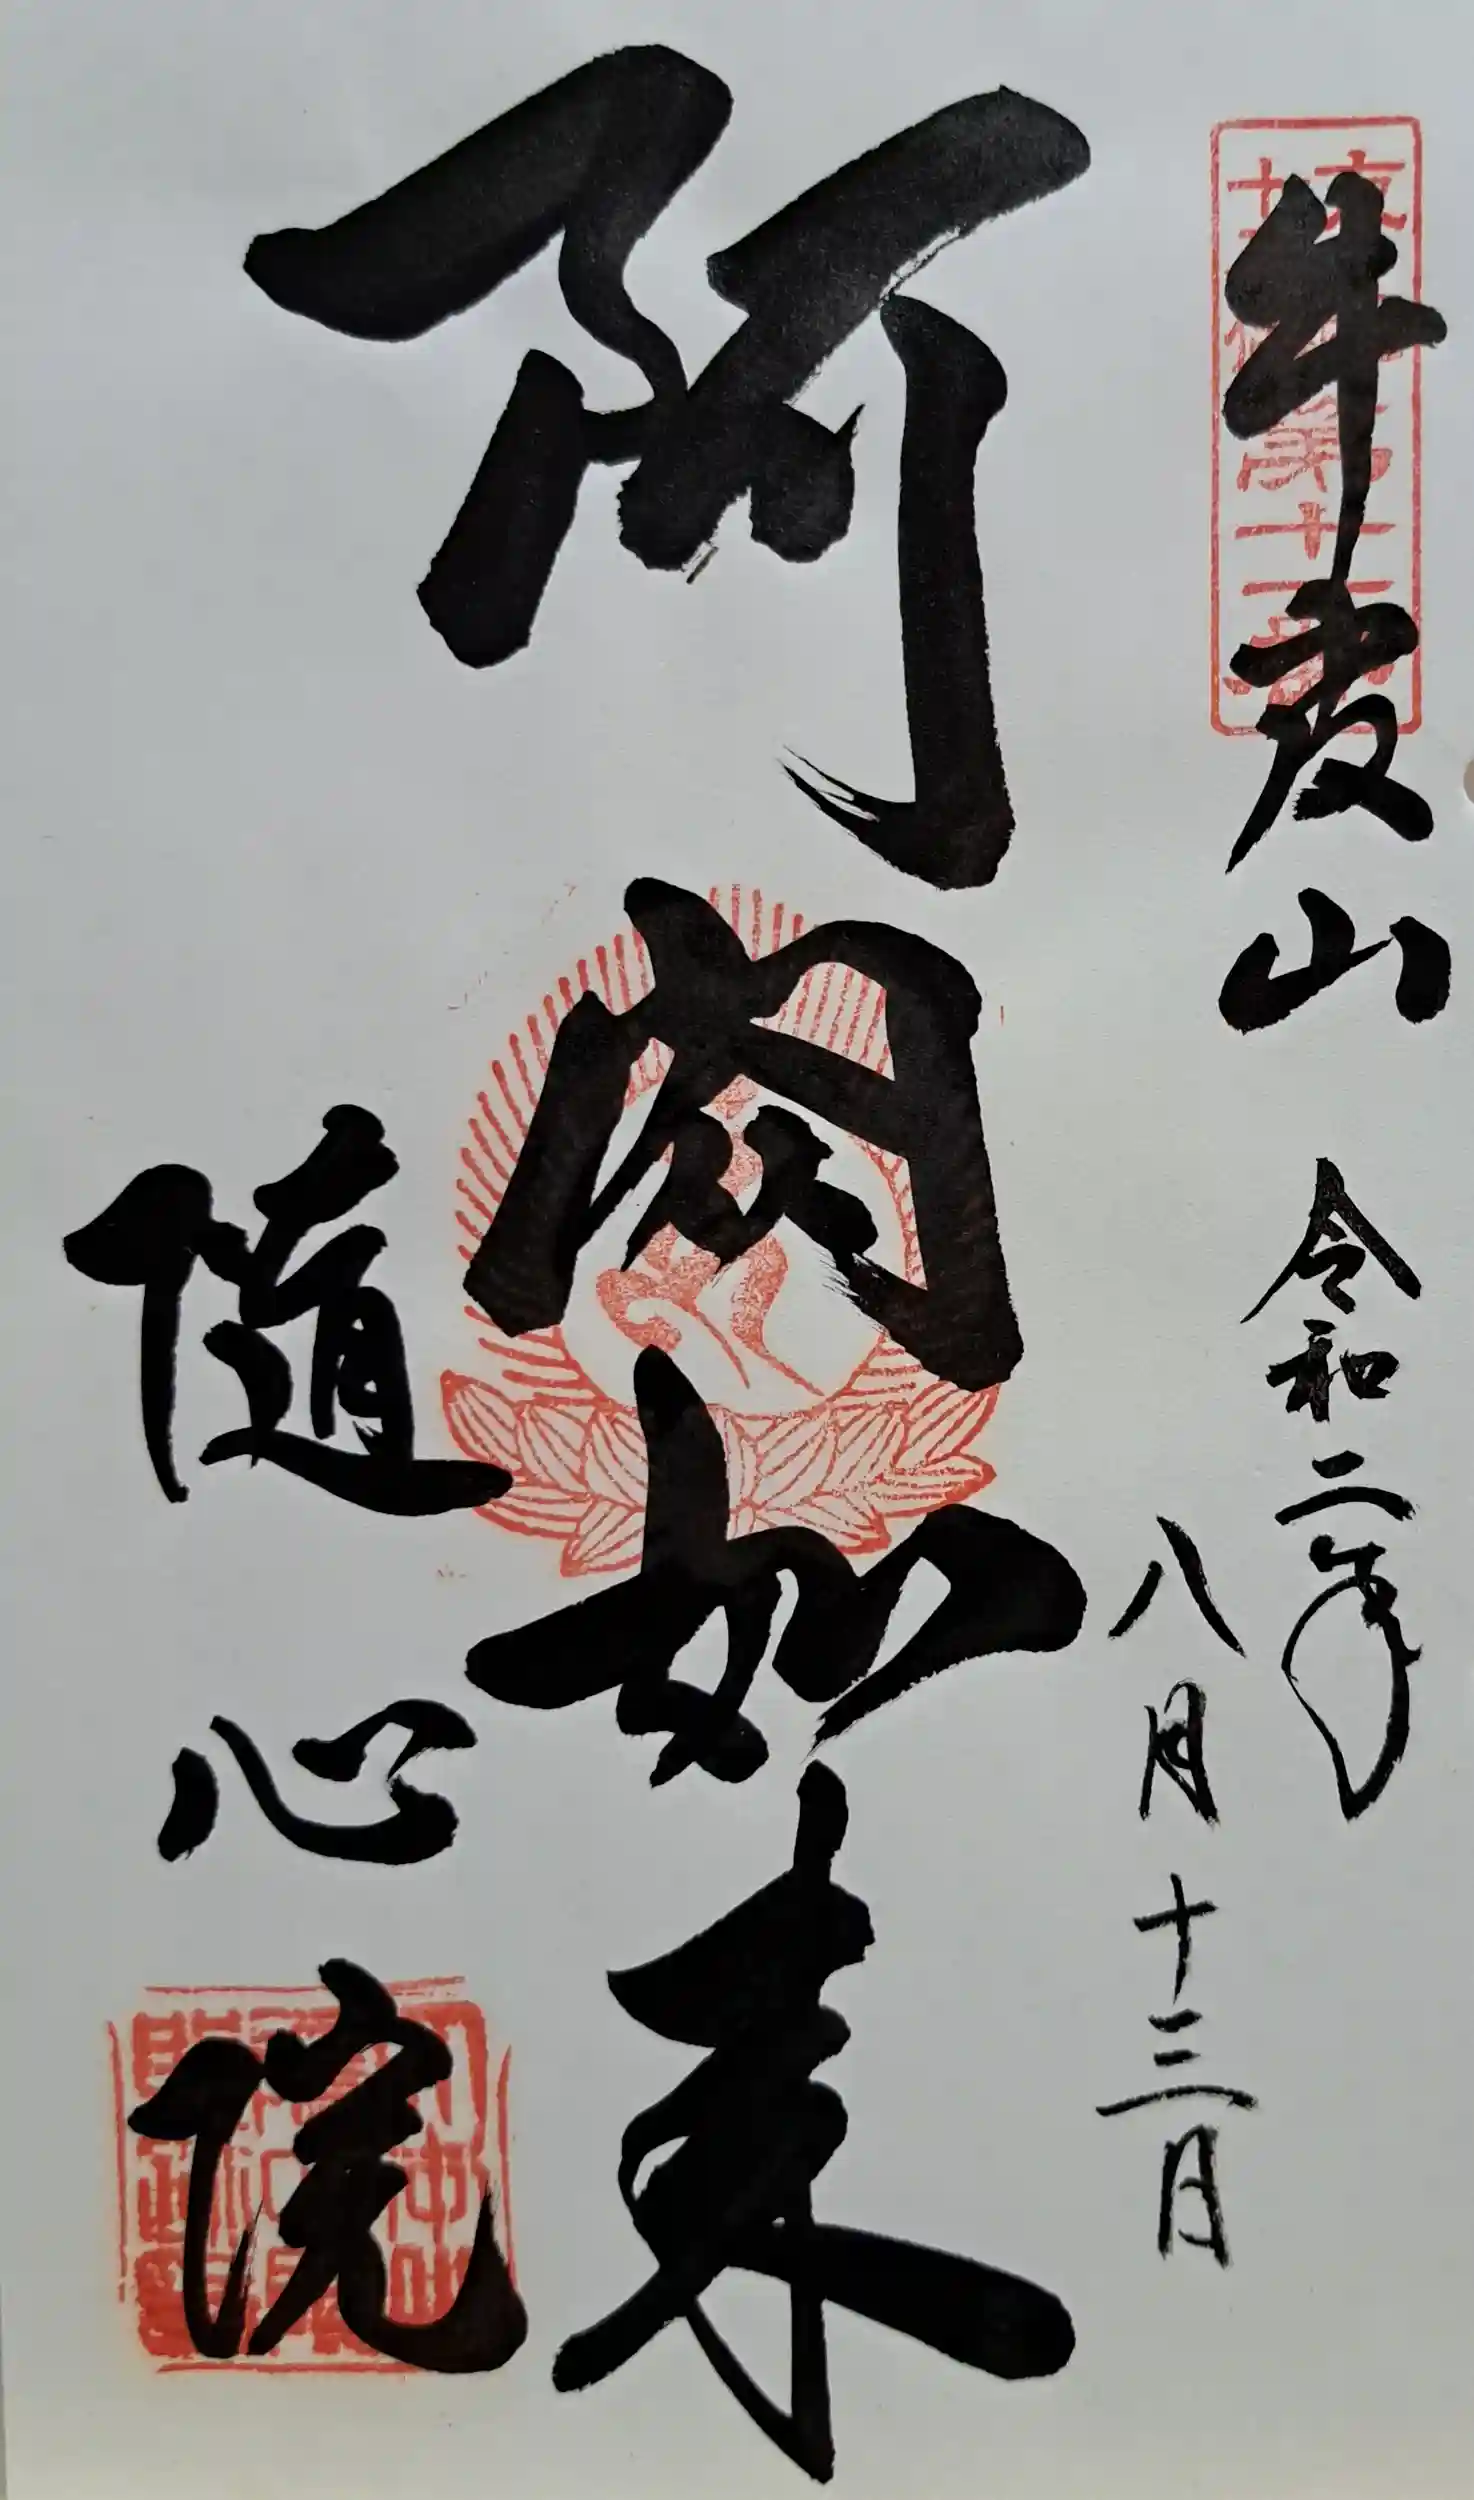 牛皮山
令和二年
八月十三日
阿閦如来
随心院